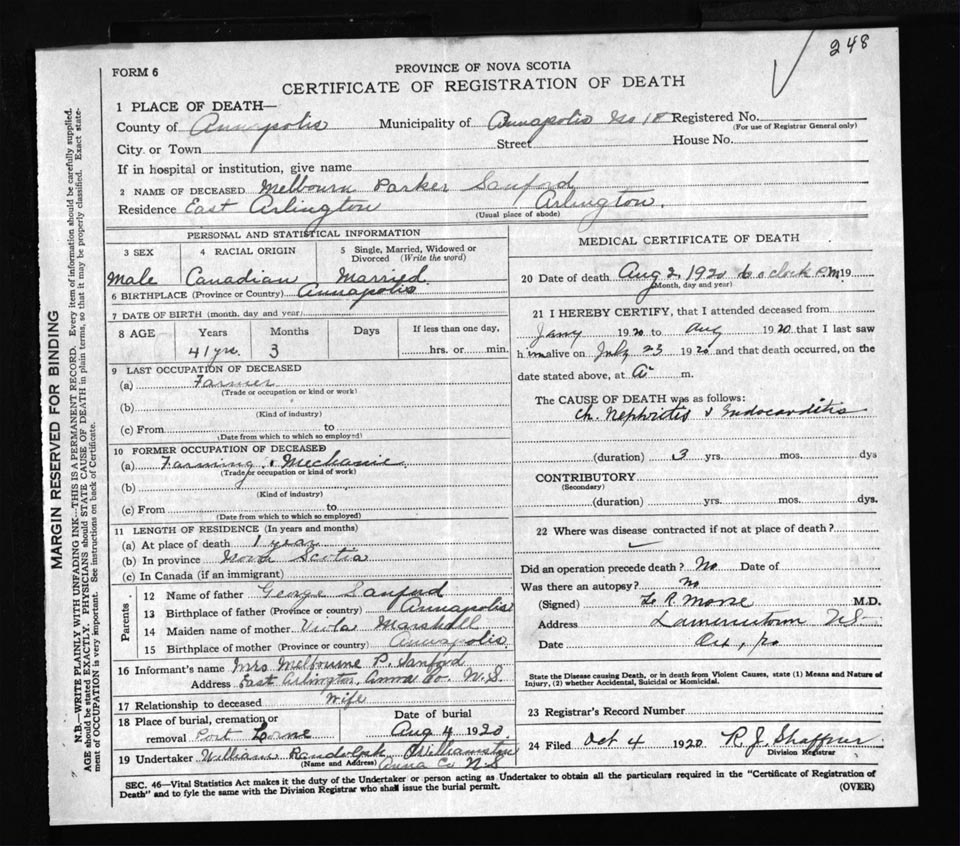 248
FORM 6
PROVINCE OF NOVA SCOTIA
CERTIFICATE OF REGISTRATION OF DEATH
1 PLACE OF DEATH—
County of Annapolis Municipality of Annapolis No 18 Registered No.
(For use of Registrar General only)
City or Town Street House No.
If in hospital or institution, give name
2 NAME OF DECEASED Melbourn Parker Sanford
Residence East Arlington Arlington.
(Usual place of abode)
PERSONAL AND STATISTICAL INFORMATION
3 SEX 4 RACIAL ORIGIN 5 Single, Married, Widowed or Divorced (Write the word)
Male Canadian Married
6 BIRTHPLACE (Province or Country) Annapolis
7 DATE OF BIRTH (month, day and year)
8 AGE Years Months Days If less than one day,
41 yrs. 3 hrs. or min.
9 LAST OCCUPATION OF DECEASED
(a) Farmer
(Trade or occupation or kind or work)
(b)
(Kind of industry)
(c) From to
(Date from which to which so employed)
10 FORMER OCCUPATION OF DECEASED
(a) Farming & Mechanic
(Trade or occupation or kind of work)
(b)
(Kind of industry)
(c) From to
(Date from which to which so employed)
11 LENGTH OF RESIDENCE (In years and months)
(a) At place of death 1 year
(b) In province Nova Scotia
(c) In Canada (if an immigrant)
Parents
12 Name of father George Sanford
13 Birthplace of father (Province or country) Annapolis
14 Maiden name of mother Viola Marshall
15 Birthplace of mother (Province or country) Annapolis
16 Informant's name Mrs Melbourne P. Sanford
Address East Arlington, Anna Co. N.S
17 Relationship to deceased Wife
18 Place of burial, cremation or removal Port Lorne Date of burial Aug 4 1920
19 Undertaker William Randolph Williamston
(Name and Address) Anna Co N S
MEDICAL CERTIFICATE OF DEATH
20 Date of death Aug 2, 1920 6 oclock P.M 19
(Month, day and year)
21 I HEREBY CERTIFY, that I attended deceased from
Jany 1920 to Aug 1920 that I last saw
him alive on July 23 1920 and that death occurred, on the
date stated above, at m.
The CAUSE OF DEATH was as follows:
Ch. Nephritis & Endocarditis
(duration) 3 yrs. mos. dys
CONTRIBUTORY
(Secondary)
(duration) yrs. mos. dys.
22 Where was disease contracted if not at place of death?
Did an operation precede death? No Date of
Was there an autopsy? No
(Signed) R. Morse M.D.
Address NS
Date
State the Disease causing Death, or in death from Violent Causes, state (1) Means and Nature of
Injury, (2) whether Accidental, Suicidal or Homicidal.
23 Registrar's Record Number
24 Filed Oct 4 1920 R. J. Shaffner
Division Registrar
SEC. 46—Vital Statistics Act makes it the duty of the Undertaker or person acting as Undertaker to obtain all the particulars required in the "Certificate of Registration of
Death" and to fyle the same with the Division Registrar who shall issue the burial permit. (OVER)
MARGIN RESERVED FOR BINDING
N.B.—WRITE PLAINLY WITH UNFADING INK—THIS IS A PERMANENT RECORD. Every item of information should be carefully supplied.
AGE should be stated EXACTLY. PHYSICIANS should STATE CAUSE OF DEATH in plain terms, so that it may be properly classified. Exact state-
ment of OCCUPATION is very important. See instructions on back of Certificate.